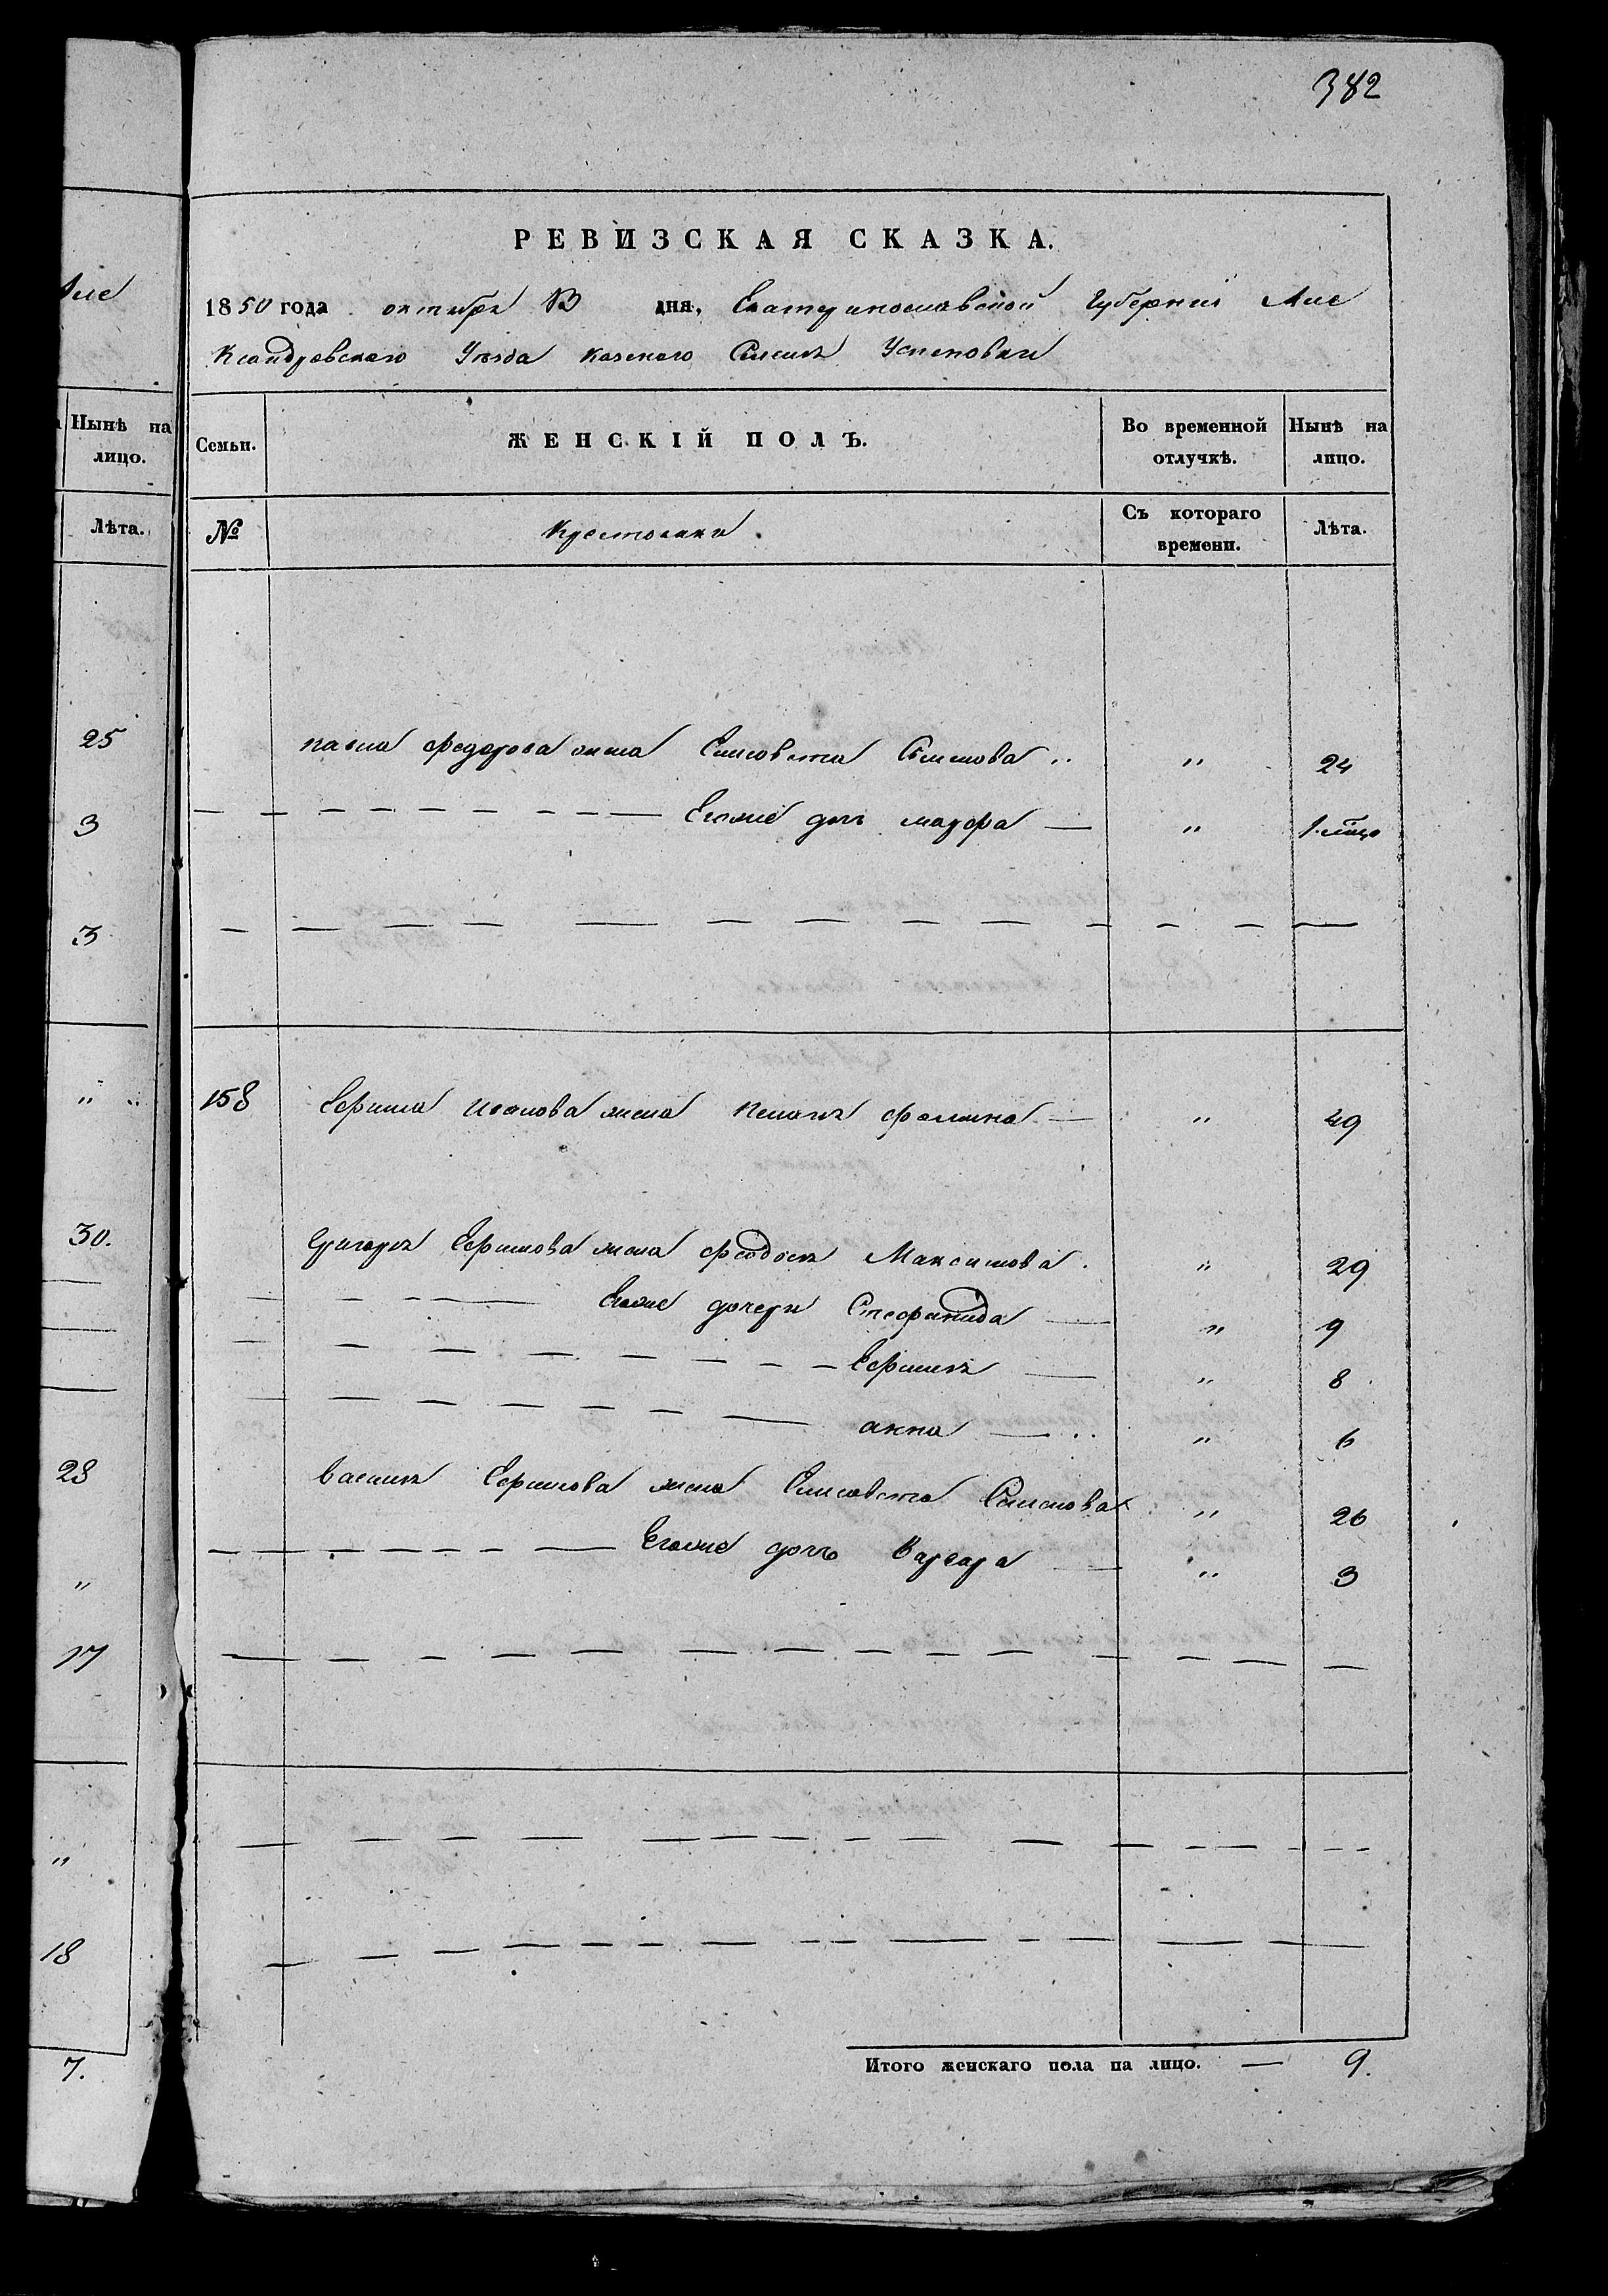 382
Але
РЕВИЗСКАЯ СКАЗКА.
1850 года октября 13 дня, Екатеринославской Губерніи Але
Ксандровскаго Уѣзда казеного Селенія Успеновки
Нынѣ на лицо.
Семьи.
ЖЕНСКІЙ ПОЛЪ.
Во временной отлучкѣ.
Нынѣ на лицо.
Лѣта.
№
Крестьянки
Съ котораго времени.
Лѣта.
25
павла федорова жена Елисовета Семенова " 24
3
Егоже дочь мавра " 1 мѣсяц
3
" 158 Ефима иванова жена пелагия фомина " 49
30.
Григория Ефимова жена феодосия Максимова. " 29
Егоже дочери Стефанида " 9
Ефимия " 8
анна " 6
28
василия Ефимова жена Елисавета Семенова " 26
Егоже дочь варвара " 3
"
17
"
18
7.
Итого женскаго пола на лицо. — 9.